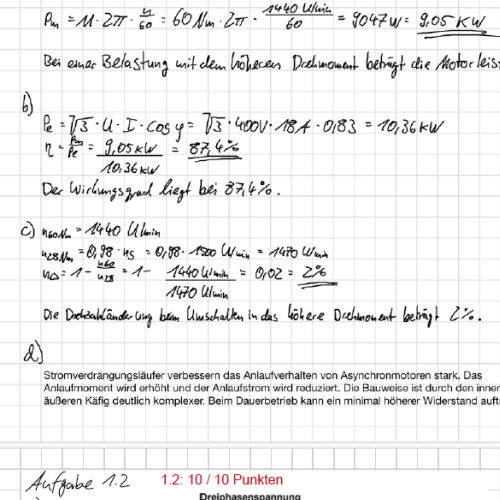 Pm = M · 2π · n/60 = 60Nm · 2π · 1440 U/min / 60 = 9047W = 9,05 KW
Bei einer Belastung mit dem höheren Drehmoment beträgt die Motorleis
b)
Pe = √3 · U · I · cos φ = √3 · 400V · 18A · 0,83 = 10,36 kW
η = Pm/Pe = 9,05 KW / 10,36 KW = 87,4%
Der Wirkungsgrad liegt bei 87,4%.
c) n60Nm = 1440 U/min
n28Nm = 0,98 · ns = 0,98 · 1500 U/min = 1470 U/min
nΔ = 1 - n60/n28 = 1 - 1440 U/min / 1470 U/min = 0,02 = 2%
Die Drehzahländerung beim Umschalten in das höhere Drehmoment beträgt 2%.
d)
Stromverdrängungsläufer verbessern das Anlaufverhalten von Asynchronmotoren stark. Das
Anlaufmoment wird erhöht und der Anlaufstrom wird reduziert. Die Bauweise ist durch den inner
äußeren Käfig deutlich komplexer. Beim Dauerbetrieb kann ein minimal höherer Widerstand auft
Aufgabe 1.2 1.2: 10 / 10 Punkten
Dreiphasenspannung